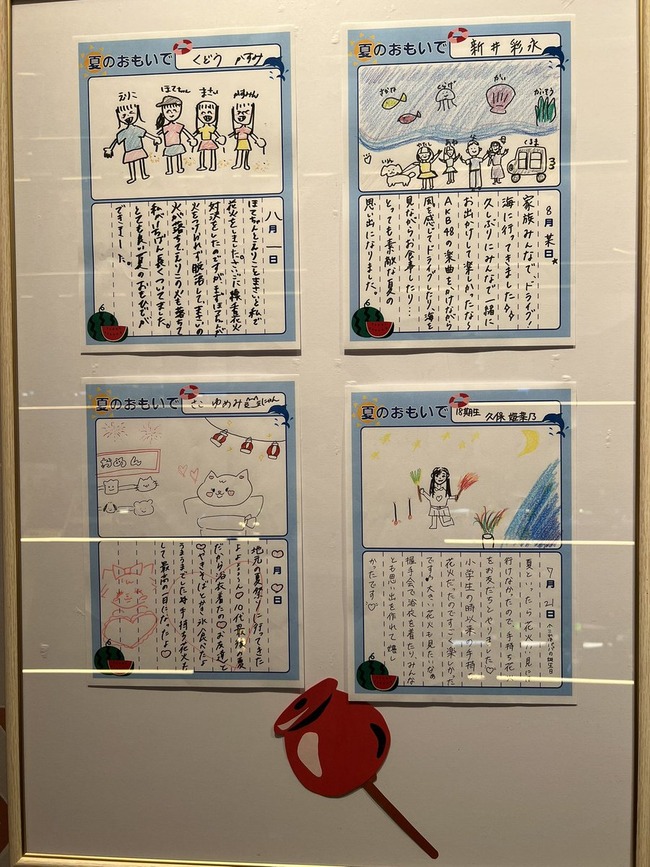 夏のおもいで
くどう かすみ
えりこ
ほてちゃん
まさい
かすみん
八月一日
ほてちゃんとえりことまさいと私で
花火をしました。さいごに線香花火
対決をしたのですがまずほてちゃんが
火をつけられず脱落してまさいの
火が落ちてえりこの火も落ちて
私がいちばん長くついてました。
とても良い夏のおもいでが
できましーた。
夏のおもいで
新井彩永
さかな
くらげ
かい
かいそう
いぬ
わたし
母
父
くるま
8月某日
家族みんなで、ドライブ!
海に行ってきました
久しぶりにみんなで一緒に
お出かけして楽しかったな〜
AKB48の楽曲をかけながら
風を感じてドライブしたり、海を
見ながらお食事したり…
とっても素敵な夏の
思い出になりました。
夏のおもいで
ゆめみ
おめん
♡月♡日
地元の夏祭りに行ってきた
よ 10代最後の夏
だから浴衣着たの♡お友達と
やきそばとかき氷食べたよ
手持ち花火た
して最高の一日になったよ♡
夏のおもいで
18期生
久保姫菜乃
7月21日
夏といったら花火 見に
行けなかったので手持ち花火
をお友だちとやりました♡
小学生の時以来の手持ち
花火だったのですごく楽しかった
です 大きい花火も見たいなの
握手会で浴衣を着たり、みんな
とも思い出を作れて嬉し
かったです♡